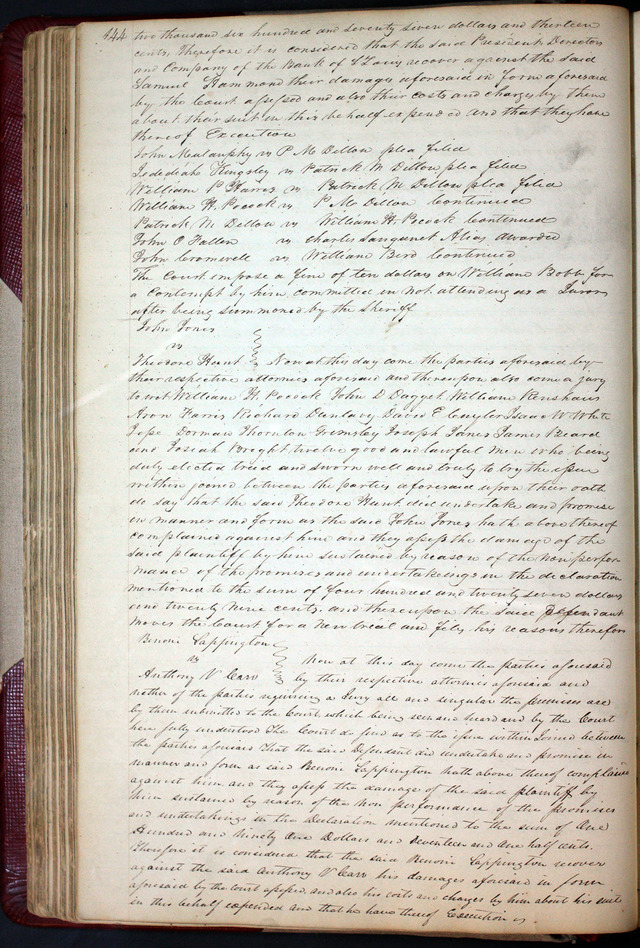 444 two thousand six hundred and seventy seven dollars and thirteen
cents. Therefore it is considered that the said President Directors
and Company of the Bank of St Louis recover against the said
Samuel Hammond their damages aforesaid in form aforesaid
by the Court assessed and also their costs and charges by them
about their suit in this behalf expended and that they have
thereof Execution
John Mulanphy vs P M Dillon plea filed
Jedediah Kingsley vs Patrick M Dillon plea filed
William P Harris vs Patrick M Dillon plea filed
William H. Pocock vs P M Dillon Continued
Patrick M Dillon vs William H. Pocock Continued
John O Fallon vs Charles Sanguinet Alias awarded
John Cromwell vs William Bird Continued
The Court impose a fine of ten dollars on William Bobb for
a Contempt by him committed in not attending as a Juror
after being summoned by the Sheriff
John Jones
vs
Theodore Hunt Now at this day come the parties aforesaid by
their respective attornies aforesaid and thereupon also come a jury
to wit William H. Pocock John D Dagget William Renshaw
Aron Farris Richard Dunlavy David E Cuyler Isaac W White
Jesse Dorman Thornton Grimsley Joseph Jones James Beard
and Josiah Bright twelve good and lawful men who being
duly elected tried and sworn well and truly to try the issue
within joined between the parties aforesaid upon their oath
do say that the said Theodore Hunt did undertake and promise
in manner and form as the said John Jones hath above thereof
complained against him and they assess the damage of the
said plaintiff by him sustained by reason of the non perfor-
mance of the promises and undertakeings in the declaration
mentioned to the sum of four hundred and twenty seven dollars
and twenty nine cents. and thereupon the said Defendant
moves the Court for a New trial and files his reasons therefor
Benoni Sappington
vs Now at this day come the parties aforesaid
Anthony V Carr by their respective attornies aforesaid and
nether of the parties requiring a Jury all and singular the premises are
by them submitted to the Court which being seen and heard and by the Court
here fully understood The Court do find as to the issue within Joined between
the parties aforesaid that the said Defendant did undertake and promise in
manner and form as said Benoni Sappington hath above thereof complained
against him and they assess the damage of the said plaintiff by
him sustained by reason of the non performance of the promises
and undertakings in the Declaration mentioned to the sum of One
Hundred and Ninety One Dollars and Seventeen and One half cents.
Therefore it is considered that the said Benoni Sappington recover
against the said Anthony V Carr his damages aforesaid in form
aforesaid by the court assessed and also his costs and charges by him about his suit
in this behalf expended and that he have thereof Execution